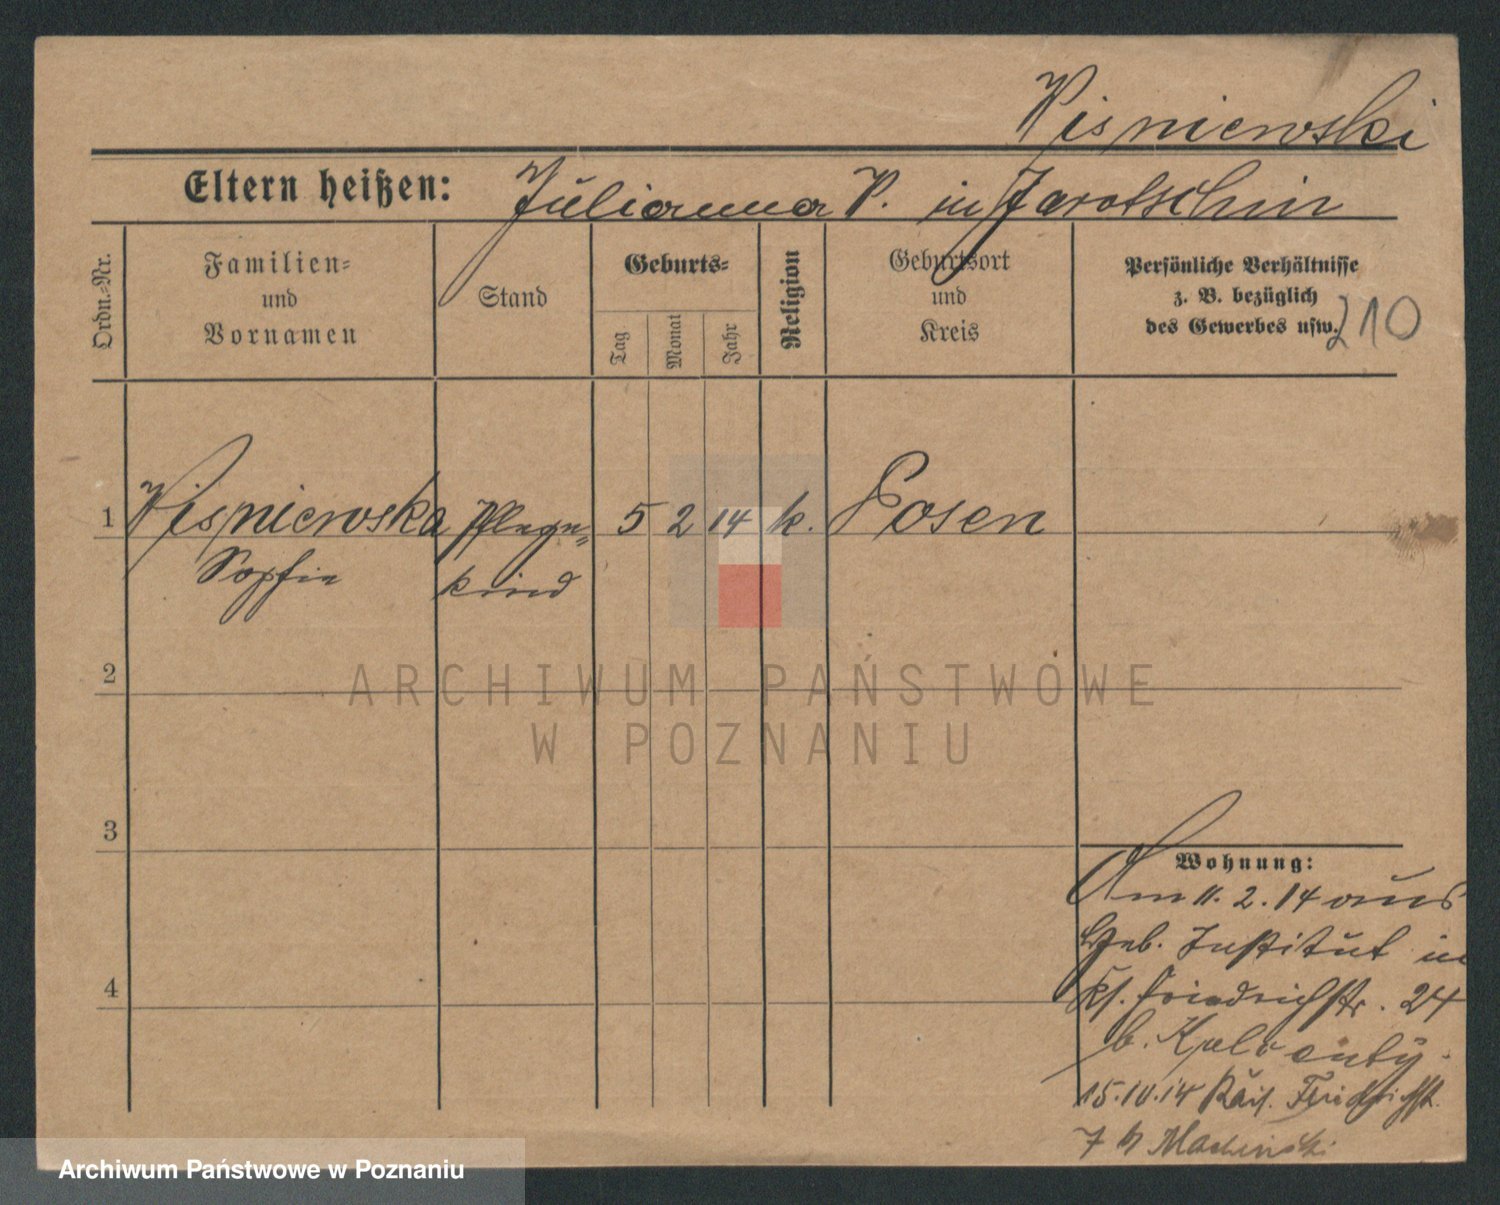 Wisniewski
Eltern heißen: Julianna W. in Jarotschin
Ordn.-Nr.
Familien- und Vornamen
Stand
Geburts-
Tag
Monat
Jahr
Religion
Geburtsort und Kreis
Persönliche Verhältnisse
z. B. bezüglich
des Gewerbes usw.
210
1 Wisniewska Pflege- 5 2 14 k. Posen
Sopfie kind
2
ARCHIWUM PAŃSTWOWE
W POZNANIU
3
Wohnung:
Am 11. 2. 14 aus
Heb. Institut in
Friedrichstr. 24
b.
4
15.10.14 Kais. Friedrichstr.
7 b
Archiwum Państwowe w Poznaniu